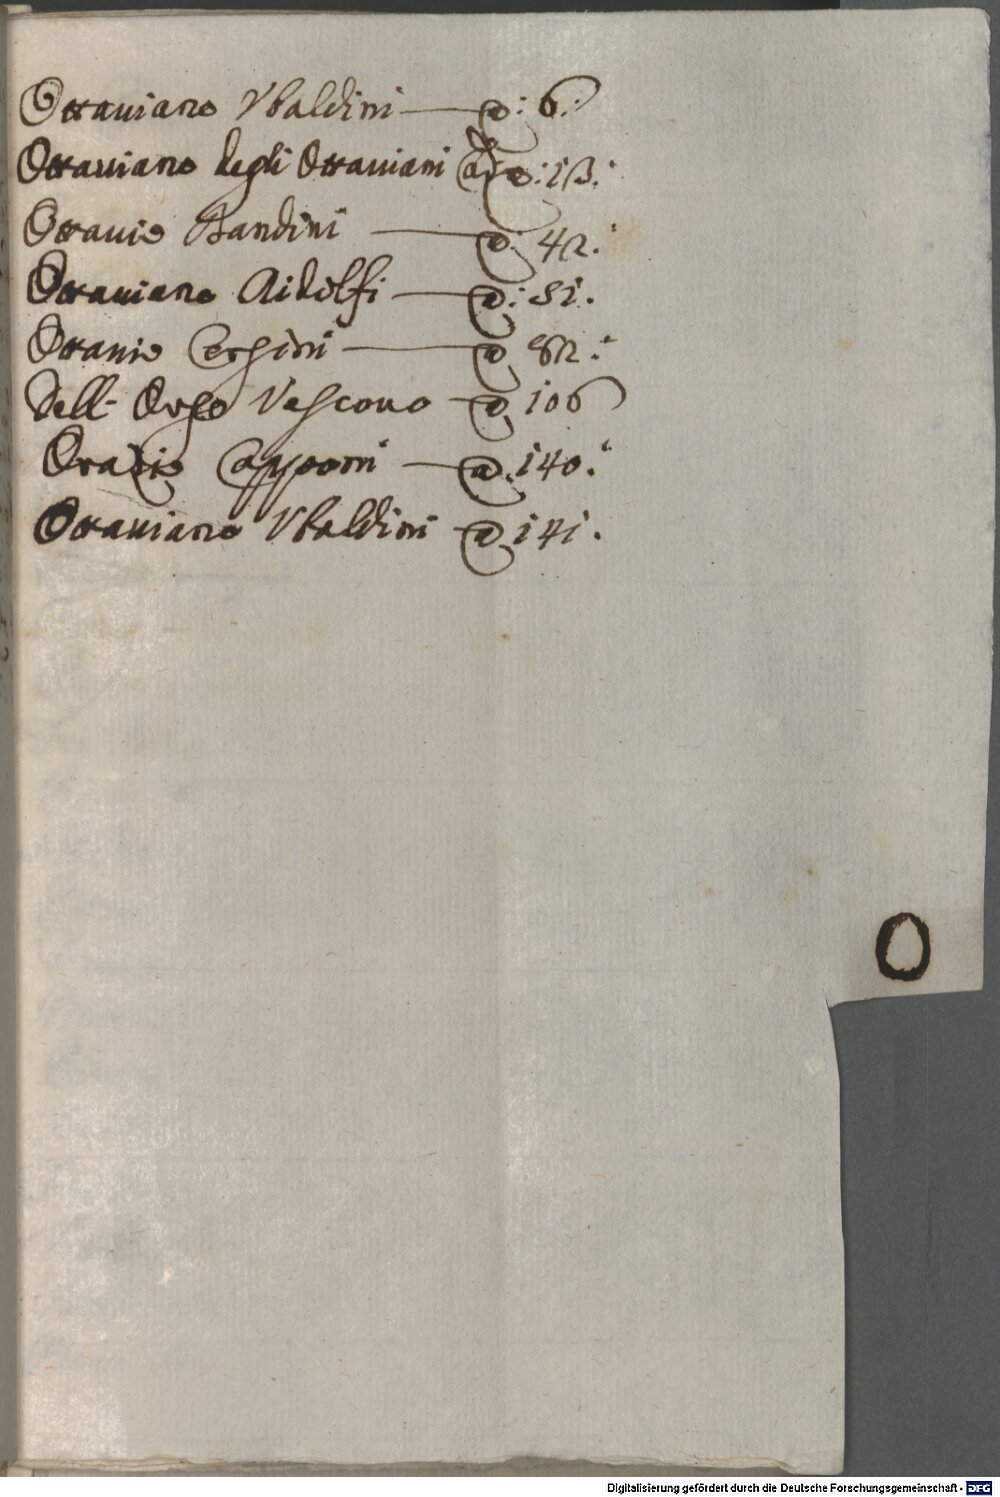 Ottauiano Vbaldini — a: 6:
Ottauiano degli Ottauiani a: 13:
Ottauio Bandini — a: 42:
Ottauiano Aidolfi — a: 81.
Ottauio Corsini — a 82:
dell' Orso Vescouo — a 106
Orazio Capponi — a. 140:
Ottauiano Vbaldini — a 141.
O
Digitalisierung gefördert durch die Deutsche Forschungsgemeinschaft - DFG